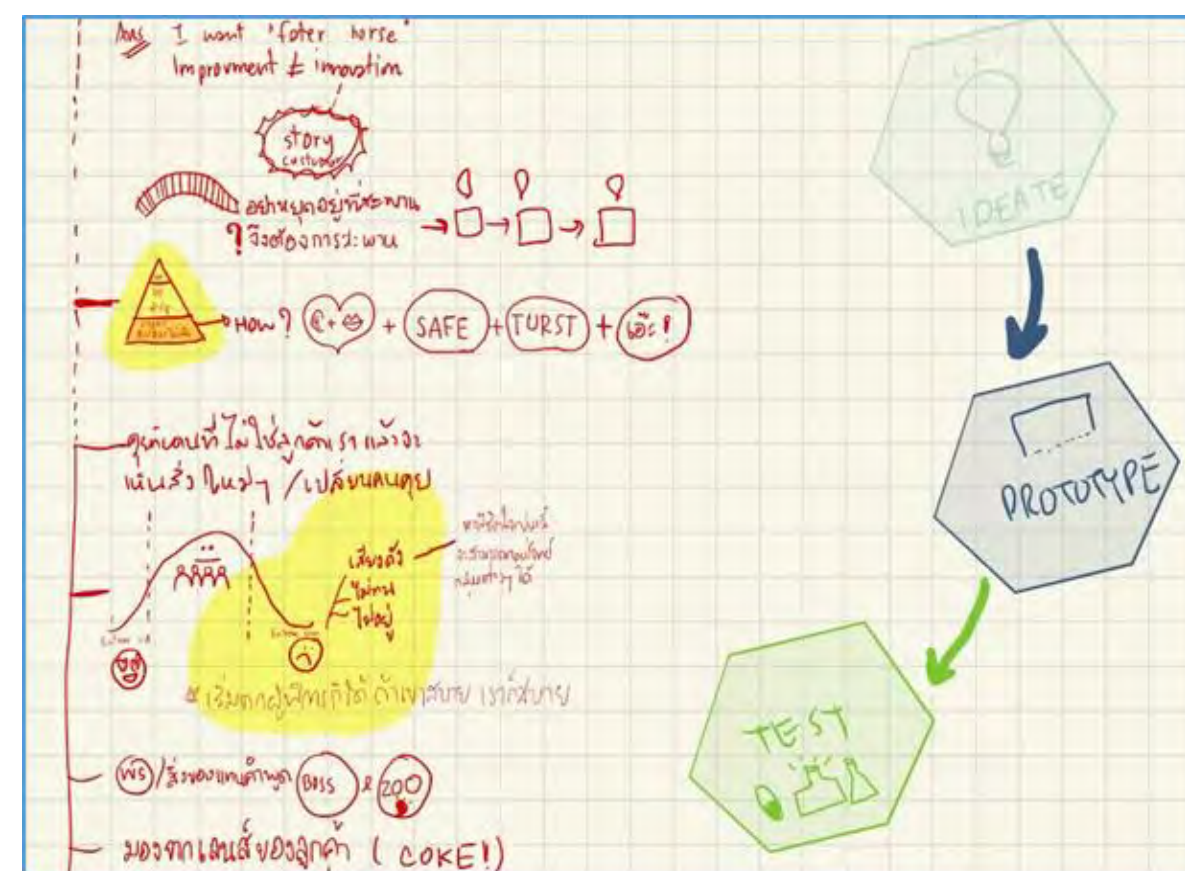 Ans I want "fater horse"
Improvment ≠ innovation
story
customer
อย่าหยุดอยู่ที่สะพาน
? จึงต้องการสะพาน
How? + SAFE + TURST + เอ๊ะ!
คุยกับคนที่ไม่ใช่ลูกค้าเราแล้วจะ
เห็นสิ่งใหม่ๆ / เปลี่ยนคนคุย
เสียงดัง
ไม่ทน
ไม่อยู่
* เริ่มจากผู้พิการก็ได้ ถ้าเขาสบาย เราก็สบาย
ฟรี / สิ่งของแทนคำพูด BOSS & 200
มองจากเลนส์ของลูกค้า (COKE!)
IDEATE
PROTOTYPE
TEST